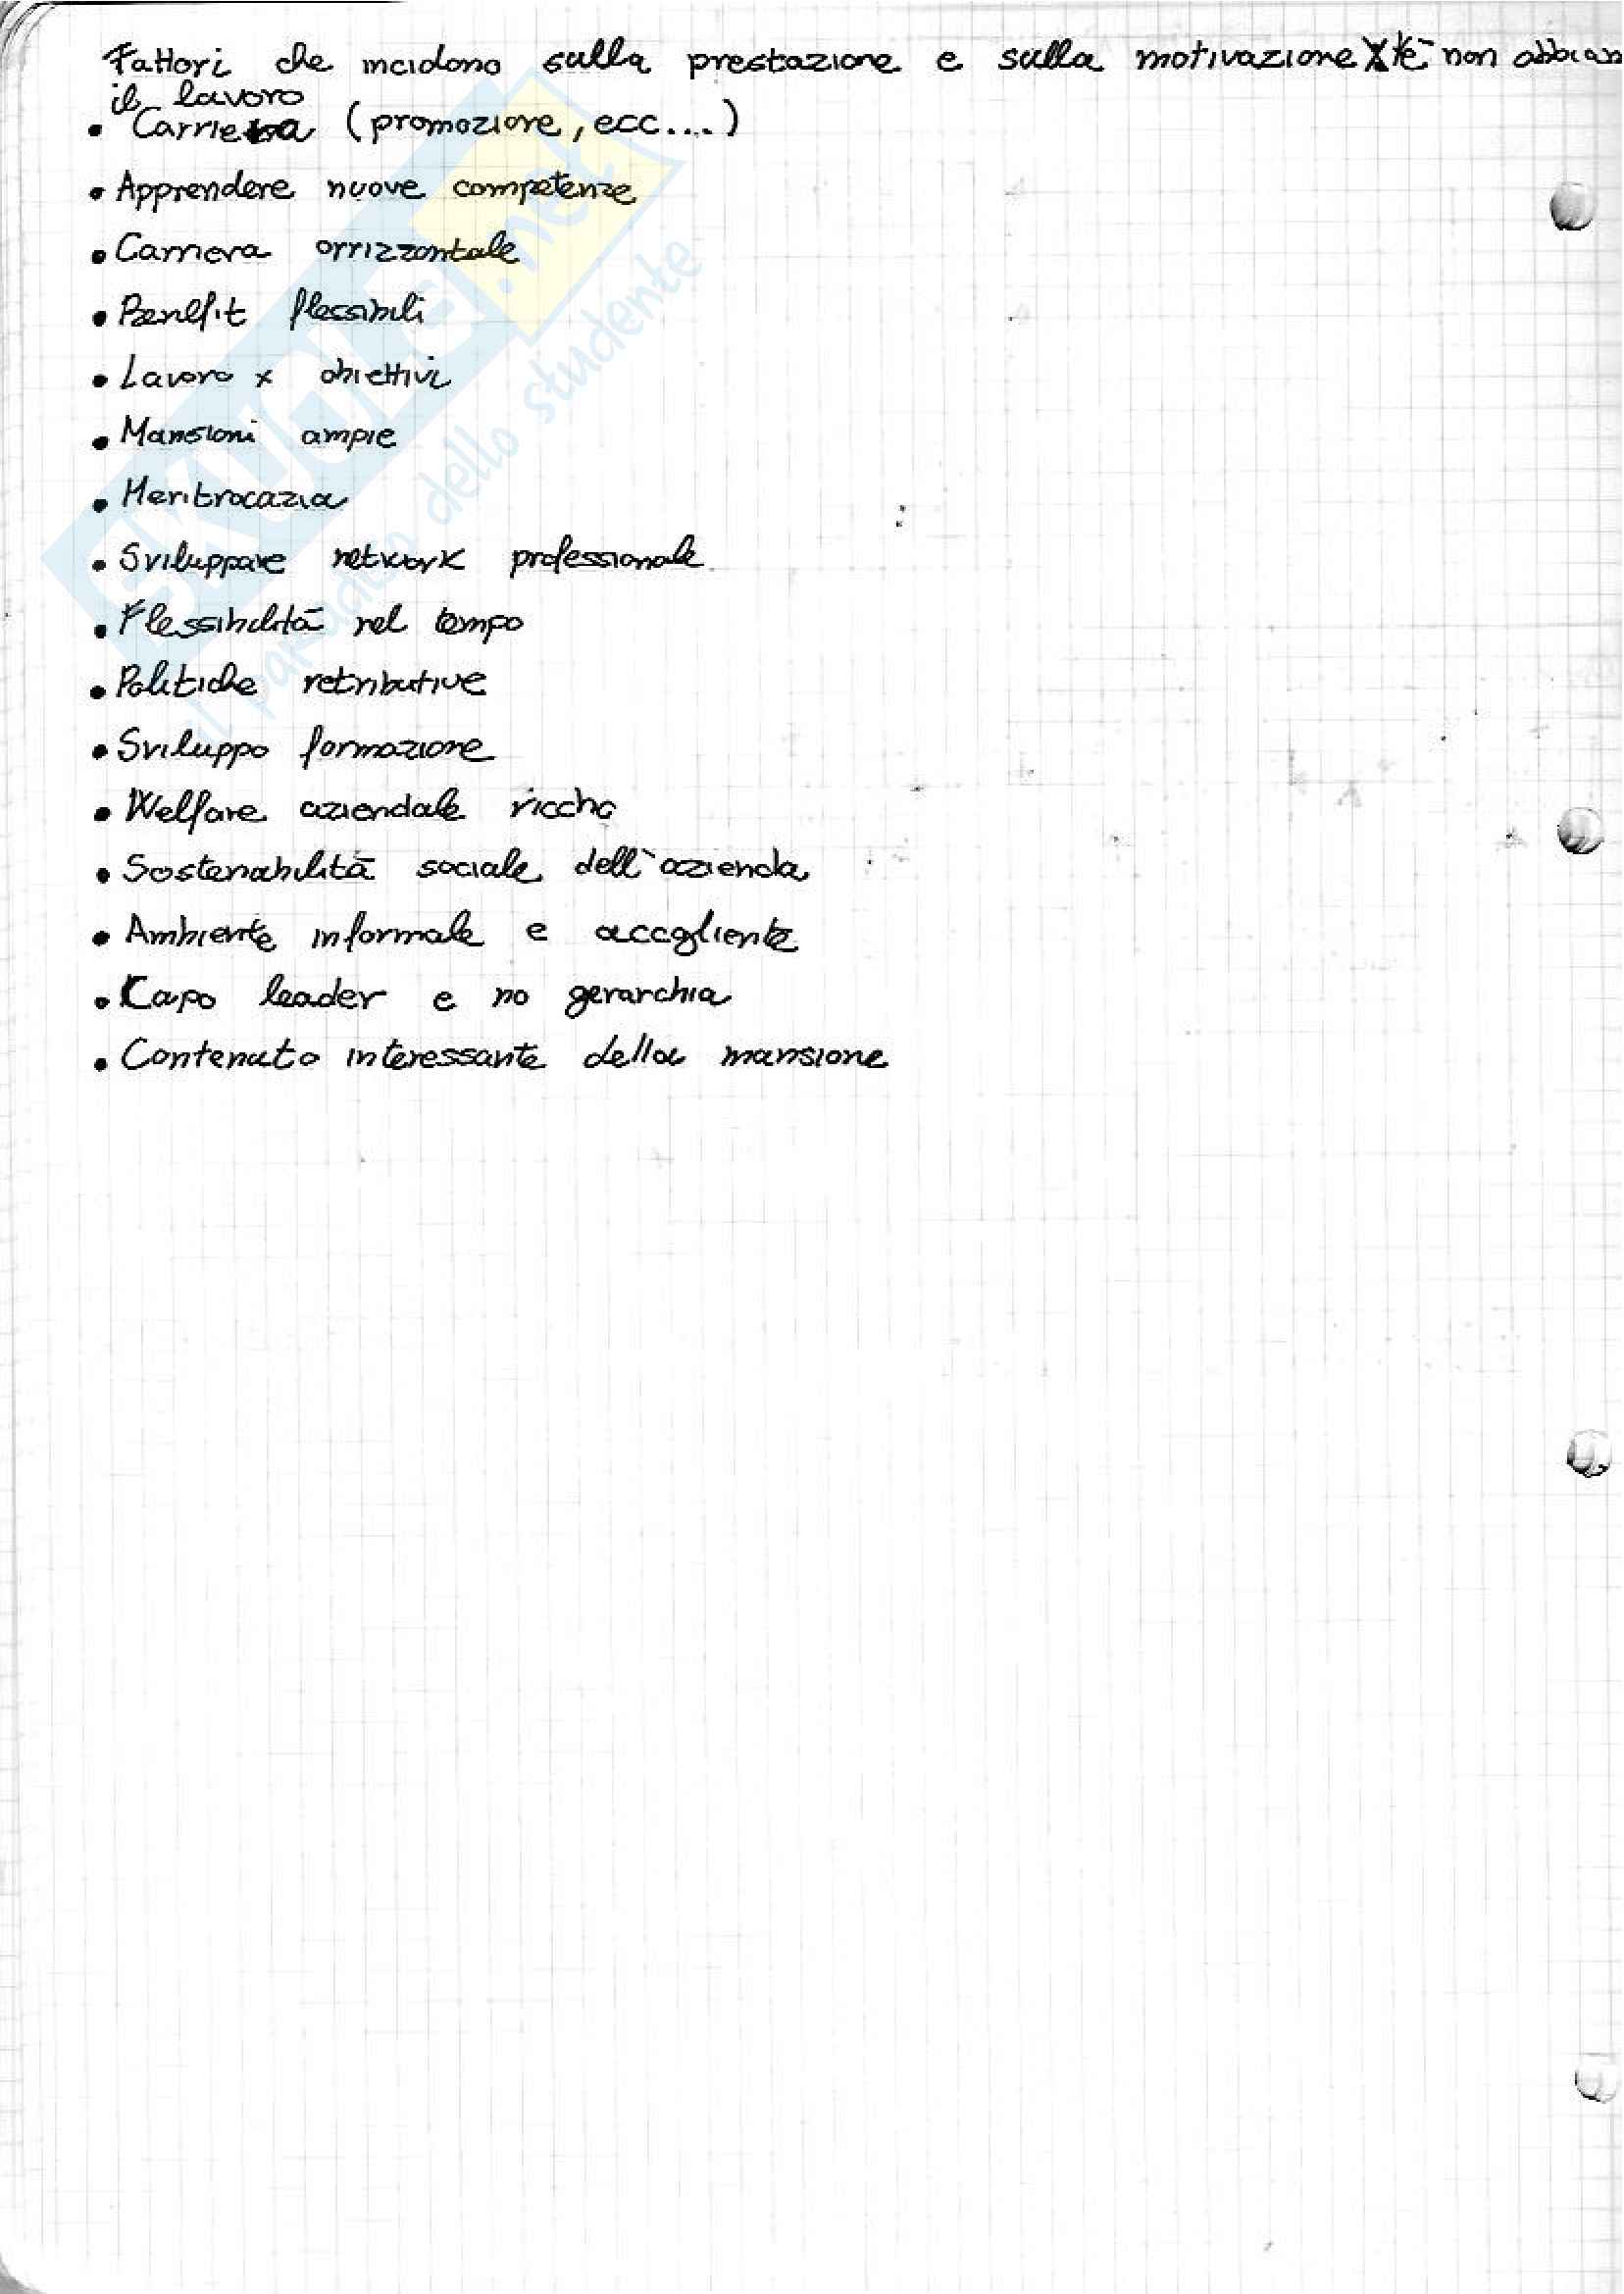 Fattori che incidono sulla prestazione e sulla motivazione Xkè non abbiam
il lavoro
• Carriera (promozione, ecc....)
• Apprendere nuove competenze
• Carriera orrizzontale
• Benefit flessibili
• Lavoro x obiettivi
• Mansioni ampie
• Meritrocazia
• Sviluppare network professionale
• Flessibilità nel tempo
• Politiche retributive
• Sviluppo formazione
• Welfare aziendale riccho
• Sostenabilità sociale dell'azienda
• Ambiente informale e accogliente
• Capo leader e no gerarchia
• Contenuto interessante della mansione
SKUOLA.net
il paradiso dello studente